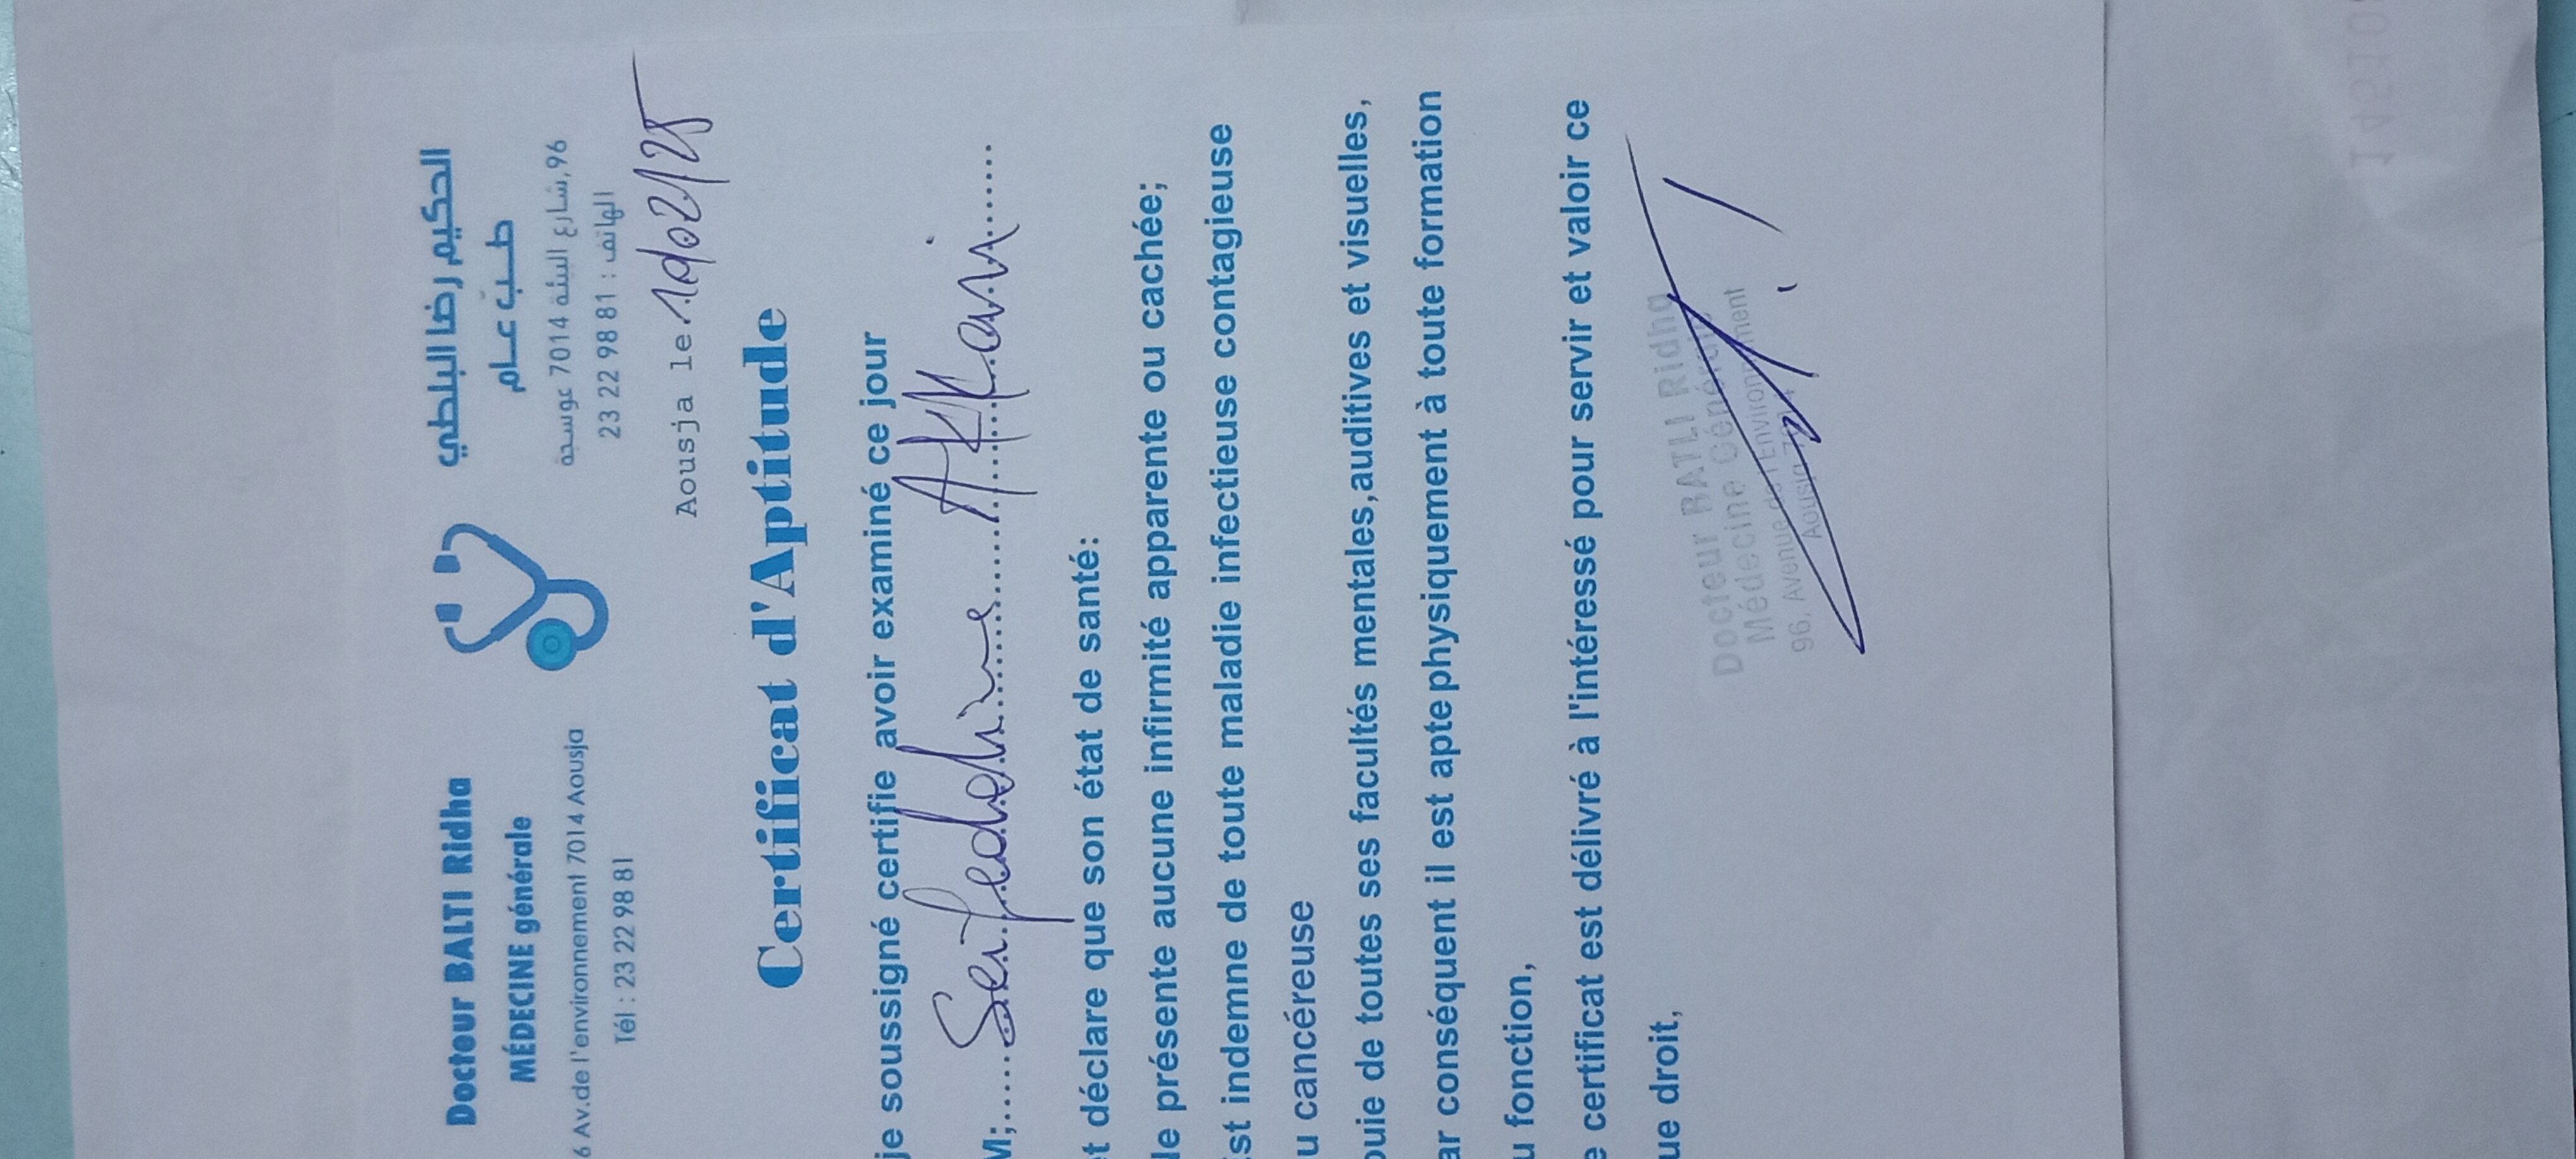 Docteur BALTI Ridha
MÉDECINE générale
6 Av.de l'environnement 7014 Aousja
Tél : 23 22 98 81
الحكيم رضا البلطي
طــبّ عــام
96,شارع البيئة 7014 عوسجة
الهاتف : 23 22 98 81
Aousja le
Certificat d'Aptitude
je soussigné certifie avoir examiné ce jour
M;..... Seifeddine AKKari
t déclare que son état de santé:
le présente aucune infirmité apparente ou cachée;
st indemne de toute maladie infectieuse contagieuse
u cancéreuse
ouie de toutes ses facultés mentales,auditives et visuelles,
ar conséquent il est apte physiquement à toute formation
u fonction,
e certificat est délivré à l'intéressé pour servir et valoir ce
ue droit,
Docteur BATLI Ridha
Médecine Générale
96, Avenue de l'Environnement
Aousja